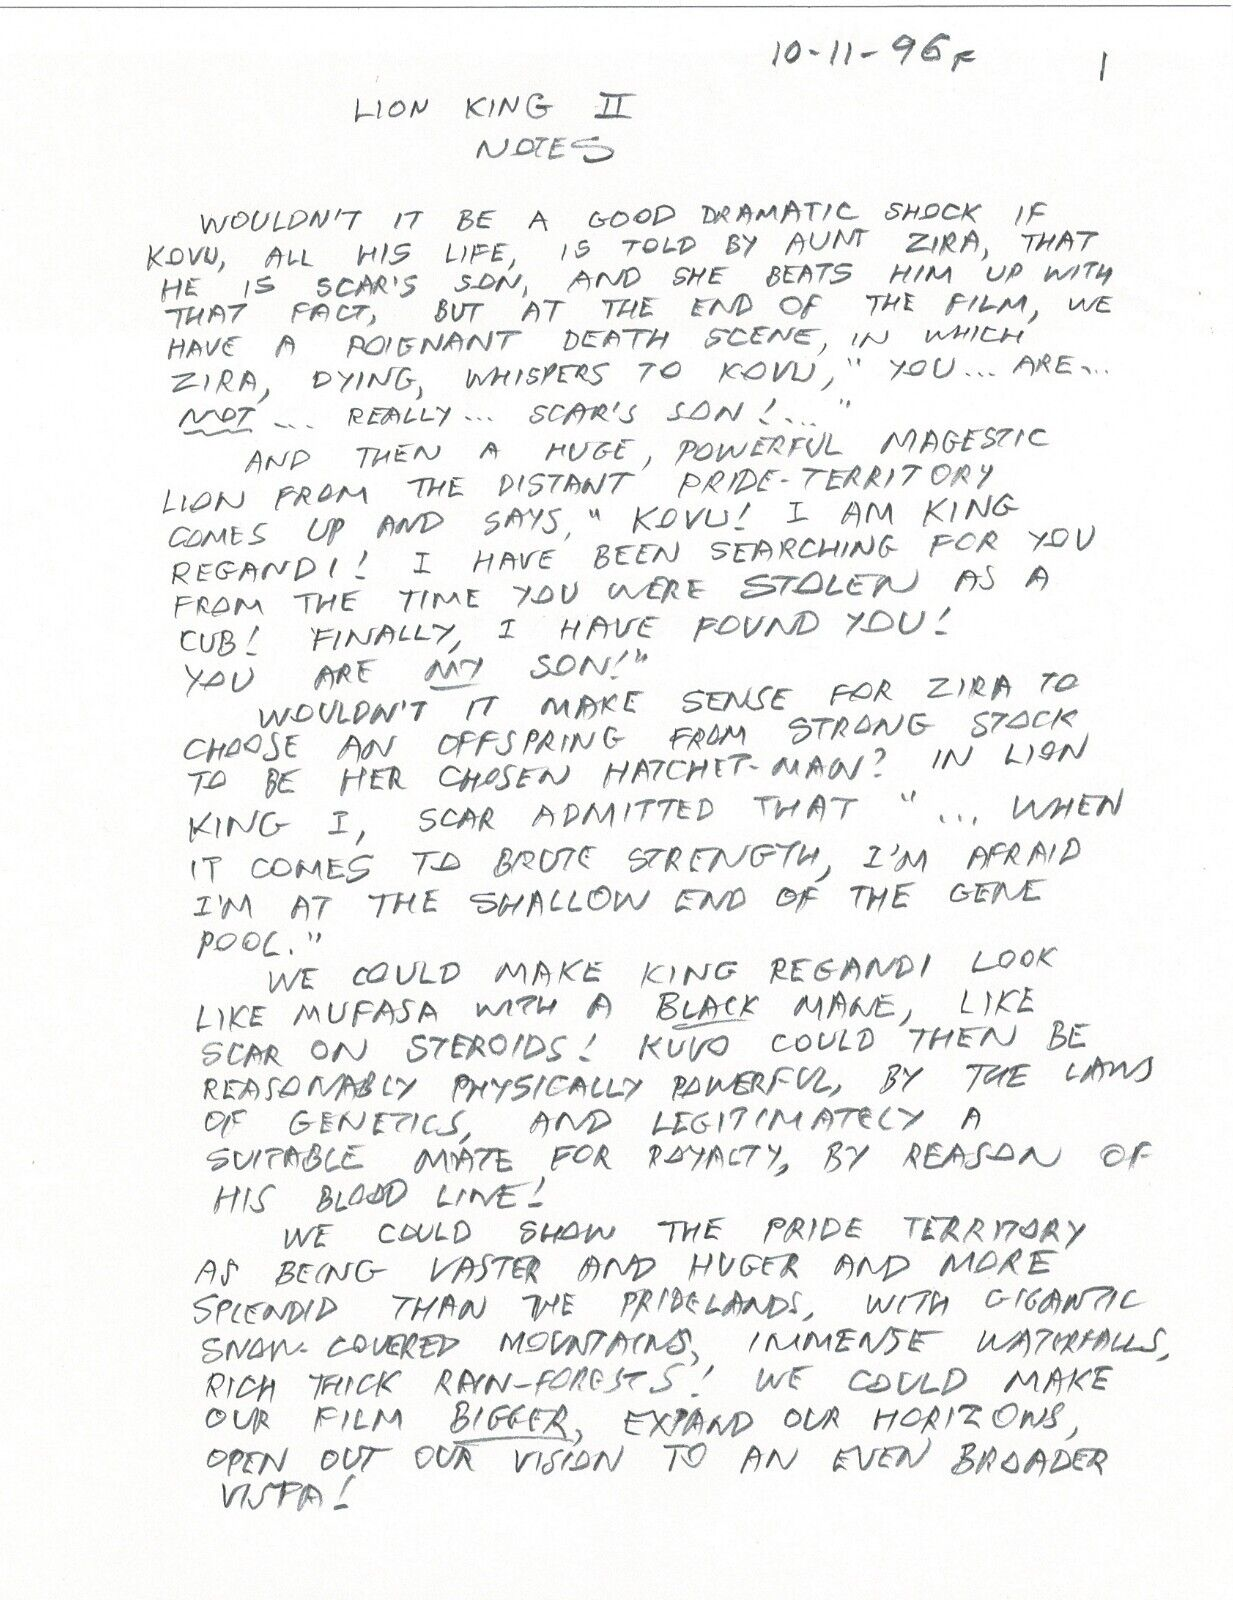 10-11-96F 1
LION KING II
NOTES
WOULDN'T IT BE A GOOD DRAMATIC SHOCK IF
KOVU, ALL HIS LIFE, IS TOLD BY AUNT ZIRA, THAT
HE IS SCAR'S SON, AND SHE BEATS HIM UP WITH
THAT FACT, BUT AT THE END OF THE FILM, WE
HAVE A POIGNANT DEATH SCENE, IN WHICH
ZIRA, DYING, WHISPERS TO KOVU, "YOU... ARE...
NOT... REALLY... SCAR'S SON!..."
AND THEN A HUGE, POWERFUL MAGESTIC
LION FROM THE DISTANT PRIDE-TERRITORY
COMES UP AND SAYS, "KOVU! I AM KING
REGANDI! I HAVE BEEN SEARCHING FOR YOU
FROM THE TIME YOU WERE STOLEN AS A
CUB! FINALLY, I HAVE FOUND YOU!
YOU ARE MY SON!"
WOULDN'T IT MAKE SENSE FOR ZIRA TO
CHOOSE AN OFFSPRING FROM STRONG STOCK
TO BE HER CHOSEN HATCHET-MAN? IN LION
KING I, SCAR ADMITTED THAT "... WHEN
IT COMES TO BRUTE STRENGTH, I'M AFRAID
I'M AT THE SHALLOW END OF THE GENE
POOL."
WE COULD MAKE KING REGANDI LOOK
LIKE MUFASA WITH A BLACK MANE, LIKE
SCAR ON STEROIDS! KUVO COULD THEN BE
REASONABLY PHYSICALLY POWERFUL, BY THE LAWS
OF GENETICS, AND LEGITIMATELY A
SUITABLE MATE FOR ROYALTY, BY REASON OF
HIS BLOOD LINE!
WE COULD SHOW THE PRIDE TERRITORY
AS BEING VASTER AND HUGER AND MORE
SPLENDID THAN THE PRIDELANDS, WITH GIGANTIC
SNOW-COVERED MOUNTAINS, IMMENSE WATERFALLS,
RICH THICK RAIN-FORESTS! WE COULD MAKE
OUR FILM BIGGER, EXPAND OUR HORIZONS,
OPEN OUT OUR VISION TO AN EVEN BROADER
VISTA!